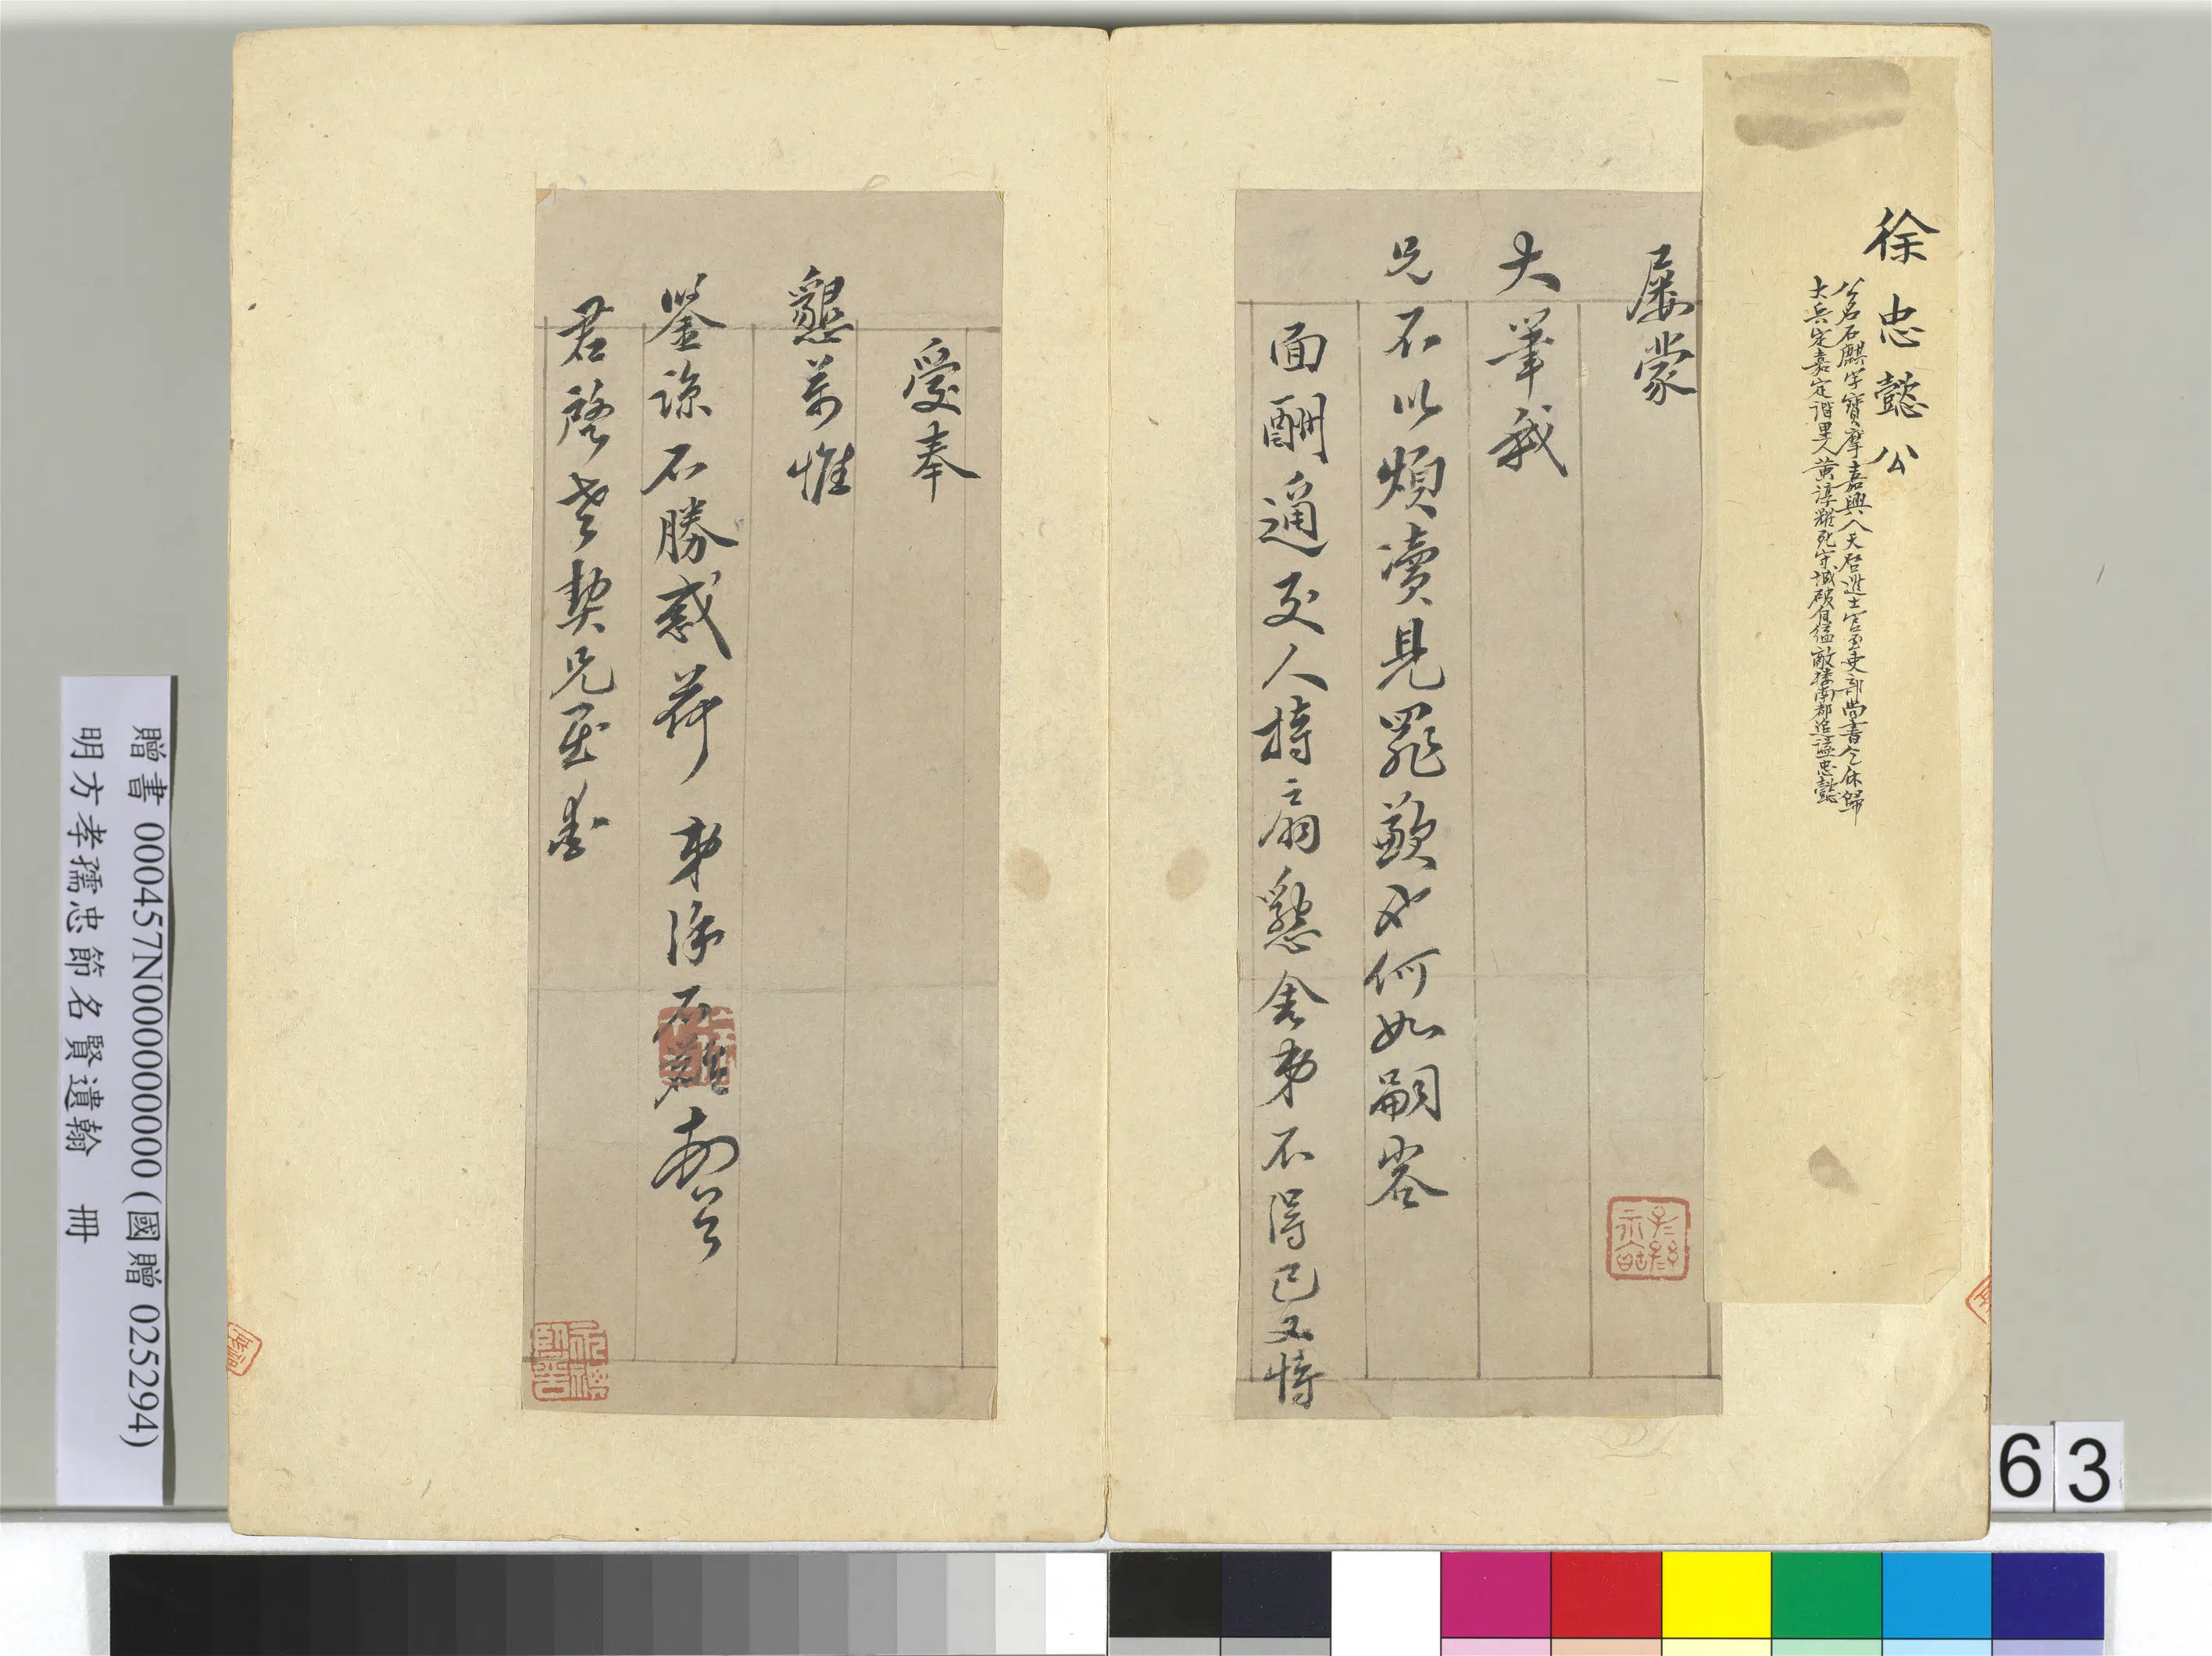 徐忠懿公
公名石麒字寶摩嘉興人天啓進士官至吏部尚書乞休歸
大兵定嘉定諧里人黃淳耀死守城破自縊敵樓南都追謚忠懿
屢蒙
大筆我
兄不以煩瀆見罪歉如何如嗣容
面酬適友人持扇懇舍弟不得已又恃
愛奉
懇萬惟
鑒諒不勝感荷 弟徐石麒
君啓老契兄
63
贈書 000457N000000000 (國贈 025294)
明方孝孺忠節名賢遺翰 冊